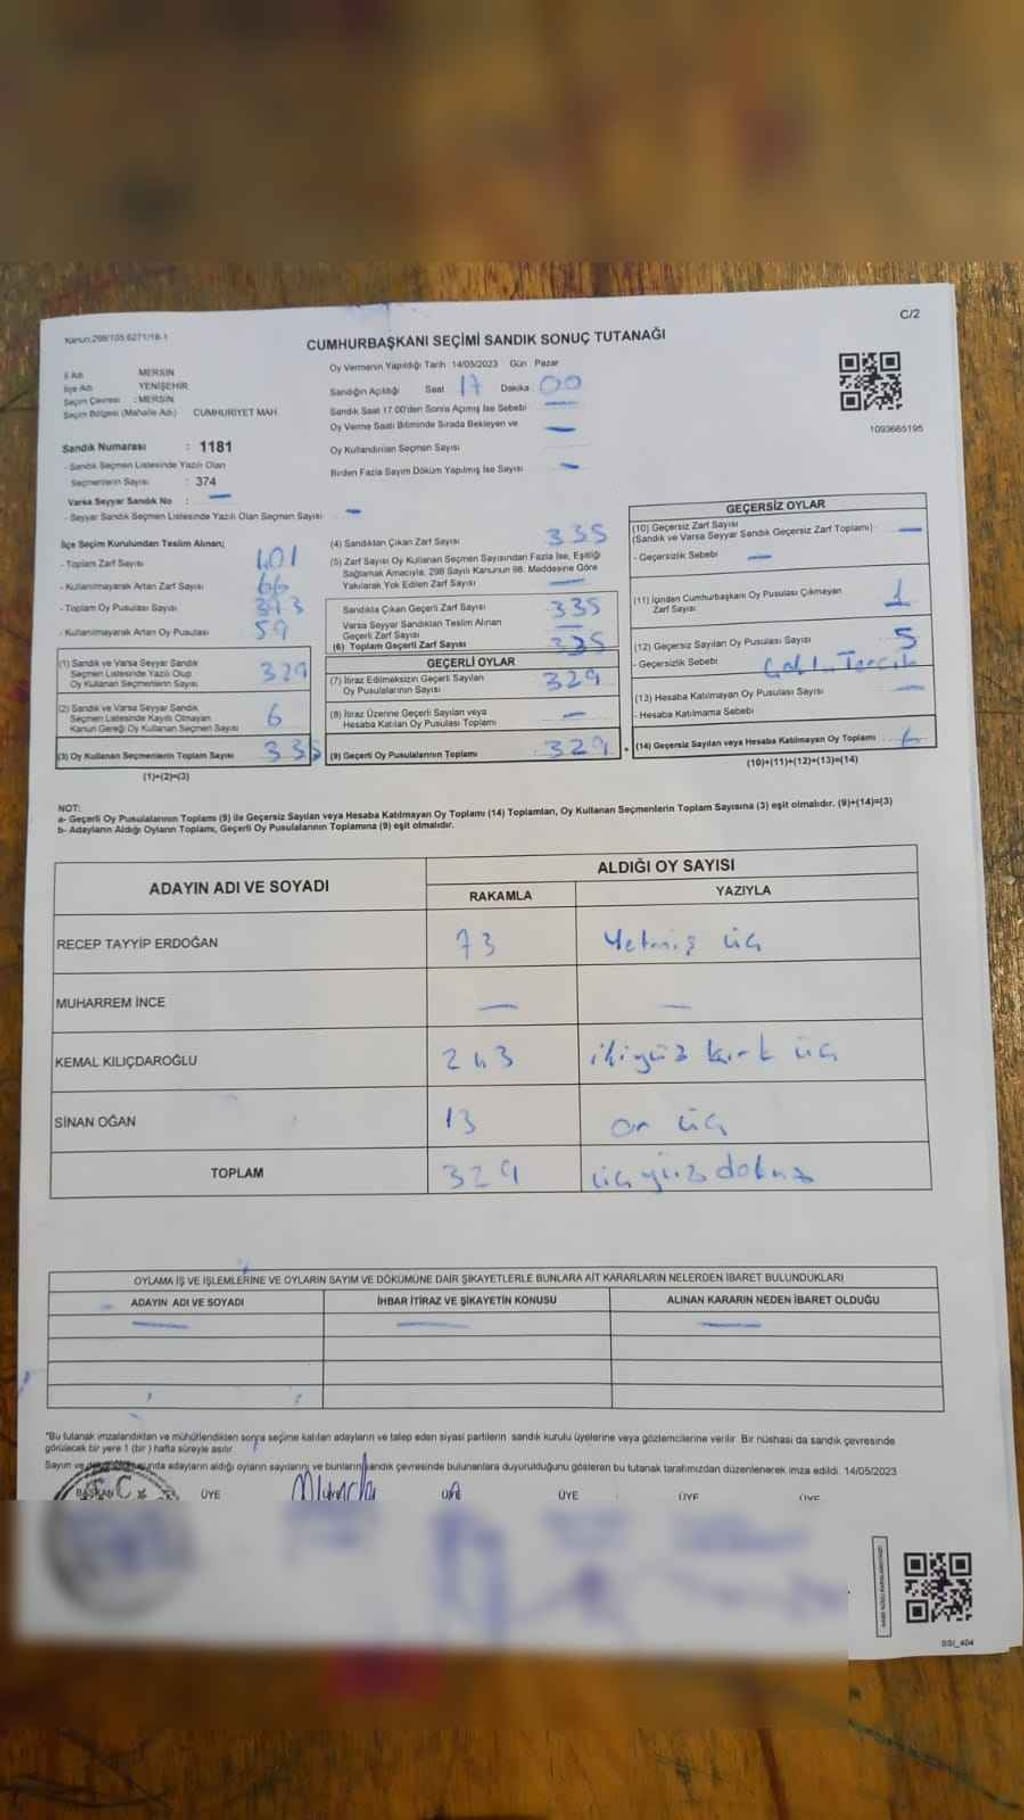 C/2
Kanun:298/105.6271/18-1
CUMHURBAŞKANI SEÇİMİ SANDIK SONUÇ TUTANAĞI
İl Adı MERSİN
İlçe Adı YENİŞEHİR
Seçim Çevresi : MERSİN
Seçim Bölgesi (Mahalle Adı) CUMHURİYET MAH.
Sandık Numarası : 1181
- Sandık Seçmen Listesinde Yazılı Olan
Seçmenlerin Sayısı : 374
Varsa Seyyar Sandık No :
- Seyyar Sandık Seçmen Listesinde Yazılı Olan Seçmen Sayısı
Oy Vermenin Yapıldığı Tarih 14/05/2023 Gün Pazar
Sandığın Açıldığı Saat 17 Dakika 00
Sandık Saat 17.00'den Sonra Açmış İse Sebebi
Oy Verme Saati Bitiminde Sırada Bekleyen ve
Oy Kullandırılan Seçmen Sayısı
Birden Fazla Sayım Döküm Yapılmış İse Sayısı
1093665195
İlçe Seçim Kurulundan Teslim Alınan;
- Toplam Zarf Sayısı 401
- Kullanılmayarak Artan Zarf Sayısı 66
- Toplam Oy Pusulası Sayısı
- Kullanılmayarak Artan Oy Pusulası 59
(1) Sandık ve Varsa Seyyar Sandık
Seçmen Listesinde Yazılı Olup
Oy Kullanan Seçmenlerin Sayısı 329
(2) Sandık ve Varsa Seyyar Sandık
Seçmen Listesinde Kayıtlı Olmayan
Kanun Gereği Oy Kullanan Seçmen Sayısı 6
(3) Oy Kullanan Seçmenlerin Toplam Sayısı 335
(1)+(2)=(3)
(4) Sandıktan Çıkan Zarf Sayısı 335
(5) Zarf Sayısı Oy Kullanan Seçmen Sayısından Fazla İse, Eşitliği
Sağlamak Amacıyla, 298 Sayılı Kanunun 98. Maddesine Göre
Yakılarak Yok Edilen Zarf Sayısı
Sandıkta Çıkan Geçerli Zarf Sayısı 335
Varsa Seyyar Sandıktan Teslim Alınan
Geçerli Zarf Sayısı
(6) Toplam Geçerli Zarf Sayısı 335
GEÇERLİ OYLAR
(7) İtiraz Edilmeksizin Geçerli Sayılan
Oy Pusulalarının Sayısı 329
(8) İtiraz Üzerine Geçerli Sayılan veya
Hesaba Katılan Oy Pusulası Toplamı
(9) Geçerli Oy Pusulalarının Toplamı 329
GEÇERSİZ OYLAR
(10) Geçersiz Zarf Sayısı
(Sandık ve Varsa Seyyar Sandık Geçersiz Zarf Toplamı)
- Geçersizlik Sebebi
(11) İçinden Cumhurbaşkanı Oy Pusulası Çıkmayan
Zarf Sayısı 1
(12) Geçersiz Sayılan Oy Pusulası Sayısı 5
- Geçersizlik Sebebi Çoklu Tercih
(13) Hesaba Katılmayan Oy Pusulası Sayısı
- Hesaba Katılmama Sebebi
(14) Geçersiz Sayılan veya Hesaba Katılmayan Oy Toplamı
(10)+(11)+(12)+(13)=(14)
NOT:
a- Geçerli Oy Pusulalarının Toplamı (9) ile Geçersiz Sayılan veya Hesaba Katılmayan Oy Toplamı (14) Toplamları, Oy Kullanan Seçmenlerin Toplam Sayısına (3) eşit olmalıdır. (9)+(14)=(3)
b- Adayların Aldığı Oyların Toplamı, Geçerli Oy Pusulalarının Toplamına (9) eşit olmalıdır.
ADAYIN ADI VE SOYADI ALDIĞI OY SAYISI
RAKAMLA YAZIYLA
RECEP TAYYİP ERDOĞAN 73 Yetmiş üç
MUHARREM İNCE
KEMAL KILIÇDAROĞLU 243 ikiyüz kırk üç
SİNAN OĞAN 13 on üç
TOPLAM 329 üçyüz dokuz
OYLAMA İŞ VE İŞLEMLERİNE VE OYLARIN SAYIM VE DÖKÜMÜNE DAİR ŞİKAYETLERLE BUNLARA AİT KARARLARIN NELERDEN İBARET BULUNDUKLARI
ADAYIN ADI VE SOYADI İHBAR İTİRAZ VE ŞİKAYETİN KONUSU ALINAN KARARIN NEDEN İBARET OLDUĞU
*Bu tutanak imzalandıktan ve mühürlendikten sonra seçime katılan adayların ve talep eden siyasi partilerin sandık kurulu üyelerine veya gözlemcilerine verilir. Bir nüshası da sandık çevresinde
görülecek bir yere 1 (bir) hafta süreyle asılır.
Sayım ve adayların aldığı oyların sayılarını ve bunların sandık çevresinde bulunanlara duyurulduğunu gösteren bu tutanak tarafımızdan düzenlenerek imza edildi. 14/05/2023
BAŞKAN ÜYE ÜYE ÜYE ÜYE
SSI_404